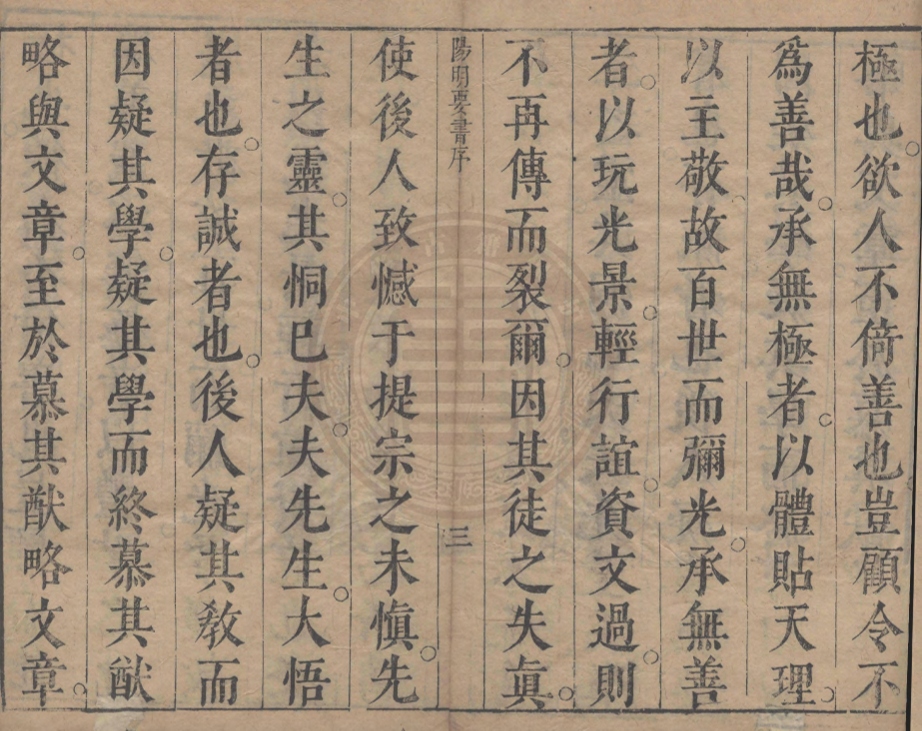 極也欲人不倚善也豈顧令不
爲善哉承無極者以體貼天理
以主敬故百世而彌光承無善
者以玩光景輕行誼資文過則
不再傳而裂爾因其徒之失眞
陽明要書序
三
使後人致憾于提宗之未愼先
生之靈其恫巳夫夫先生大悟
者也存誠者也後人疑其敎而
因疑其學疑其學而終慕其猷
略與文章至於慕其猷略文章